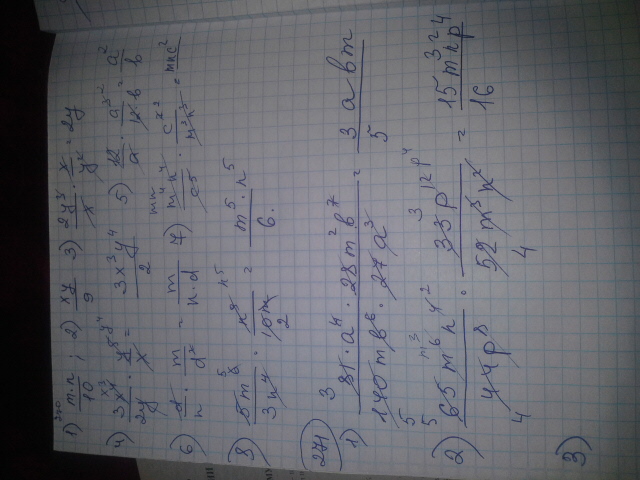 270
1) m·n/10 ; 2) xy/9 3) 2y³/x · x/y² = 2y
4) 3x⁴/2y · y⁵/x = 3x³y⁴/2 5) 12/a · a³/12b = a²/b
6) d/n · m/d² = m/n·d 7) m⁴n⁴/c⁵ · c⁷/m³n³ = mnc²
8) 5m⁵/3n⁴ · n⁹/10 = m⁵·n⁵/6.
271
1) 81·a⁴·28m²b⁷/140mb⁶·27a³ = 3abm/5
2) 65m⁶n⁴/44p⁸ · 33p¹²/52m³n² = 15m³n²p⁴/16
3)